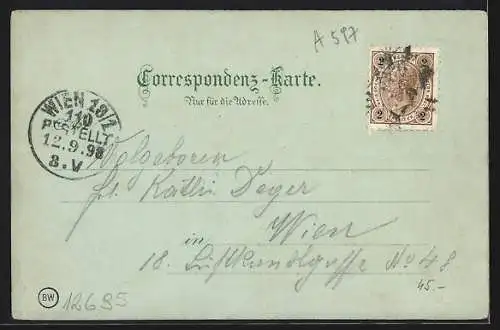 A 597
Correspondenz-Karte.
Nur für die Adresse.
2 2
2 2
WIEN 18/1
110
BESTELLT
12.9.98
8.V
Wolgeboren
Frl. Käthi Deyer
Wien
in
18. Lustkandlgasse No 48
45.-
BW
12695